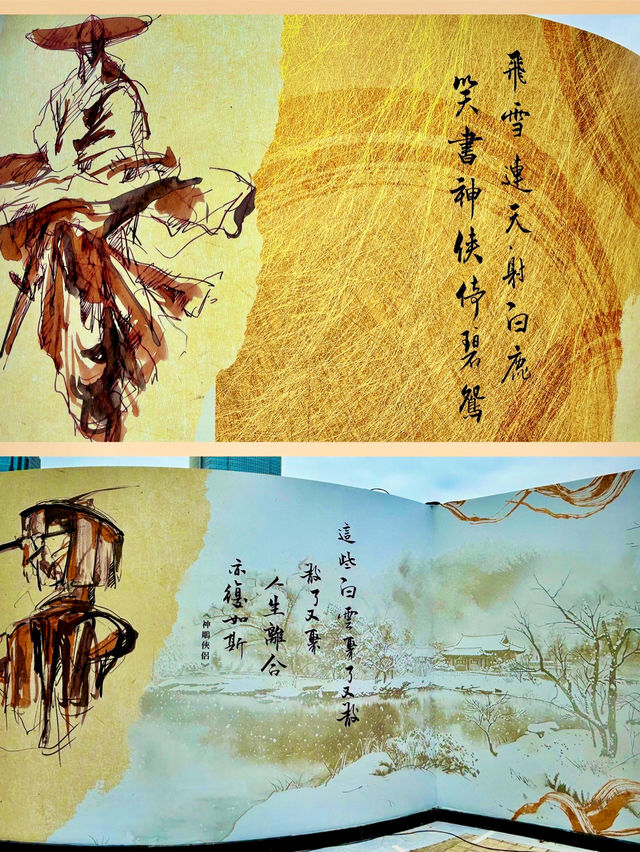 飛雪連天射白鹿
笑書神俠倚碧鴛
這些白雲聚了又散
散了又聚
人生離合
亦復如斯
《神鵰俠侶》